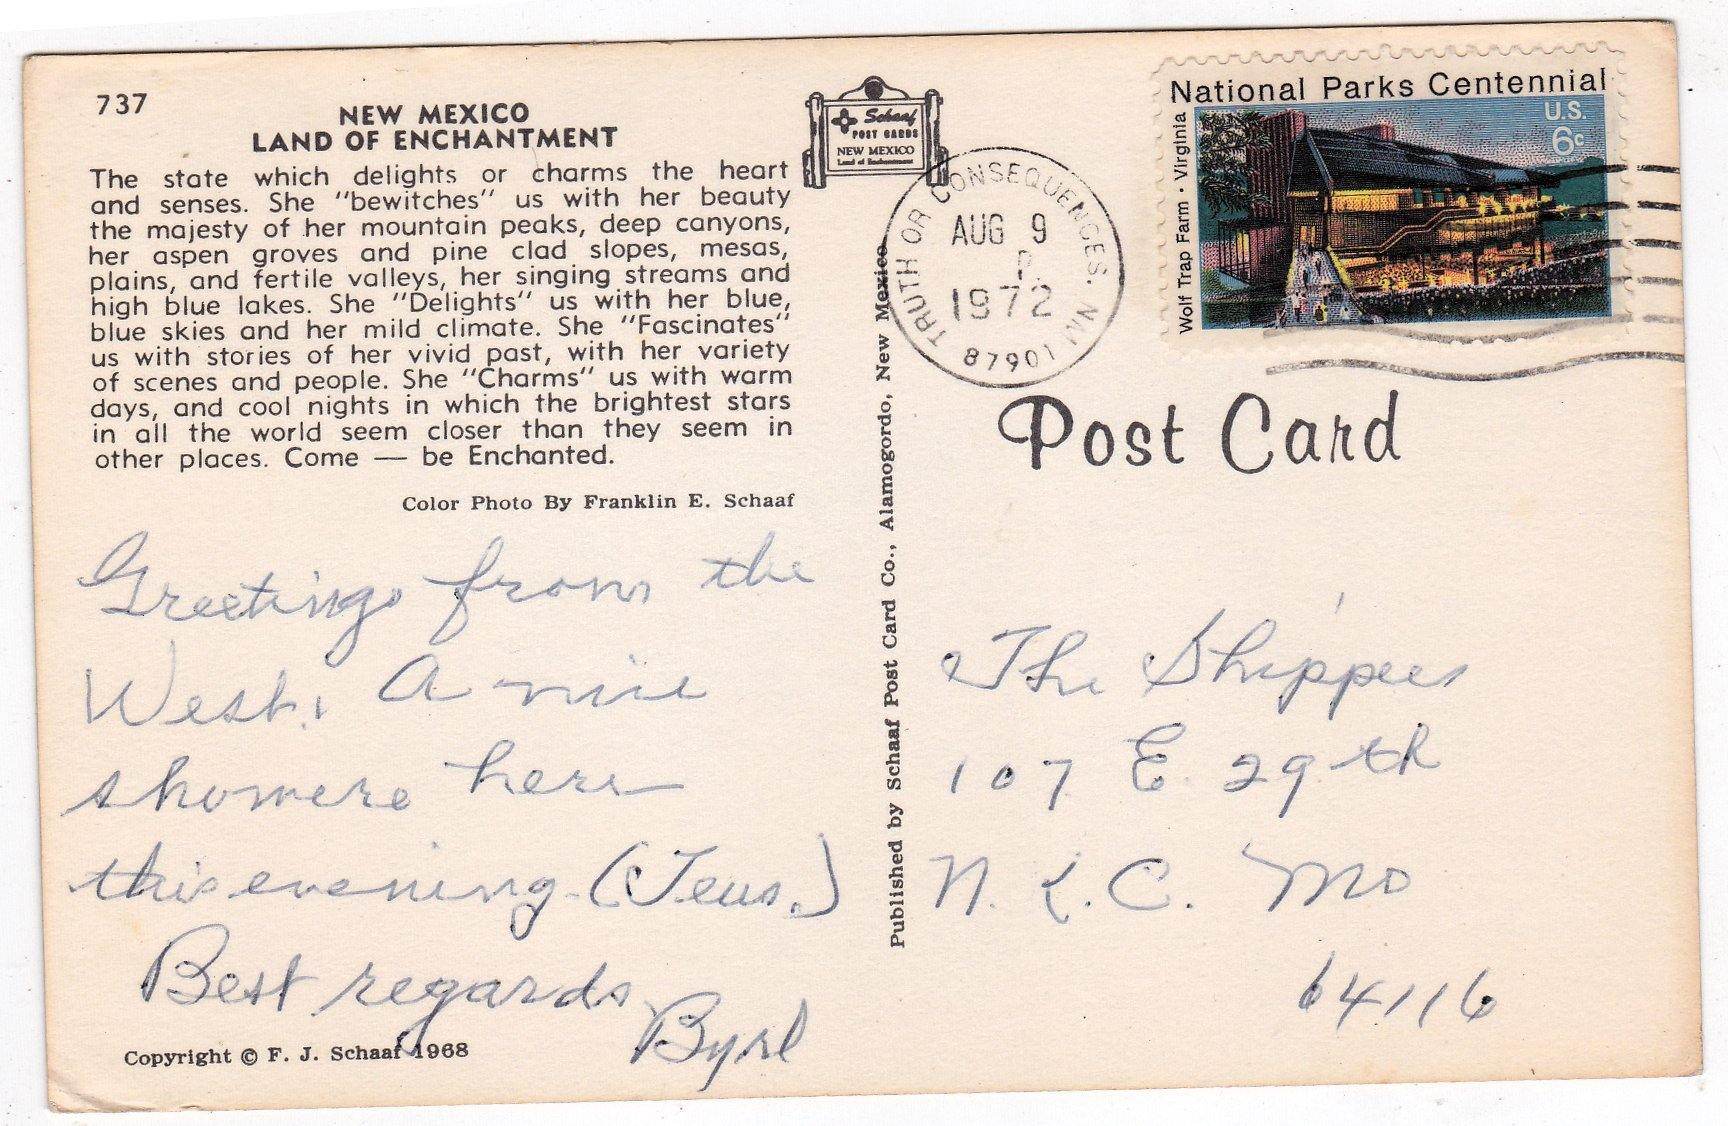 737
NEW MEXICO
LAND OF ENCHANTMENT
The state which delights or charms the heart
and senses. She "bewitches" us with her beauty
the majesty of her mountain peaks, deep canyons,
her aspen groves and pine clad slopes, mesas,
plains, and fertile valleys, her singing streams and
high blue lakes. She "Delights" us with her blue,
blue skies and her mild climate. She "Fascinates"
us with stories of her vivid past, with her variety
of scenes and people. She "Charms" us with warm
days, and cool nights in which the brightest stars
in all the world seem closer than they seem in
other places. Come — be Enchanted.
Color Photo By Franklin E. Schaaf
Greetings from the
West. A nice
showere here
this evening. (Tues.)
Best regards
Byrl
Copyright © F. J. Schaaf 1968
Schaaf
POST CARDS
NEW MEXICO
Land of Enchantment
Published by Schaaf Post Card Co., Alamogordo, New Mexico
TRUTH OR CONSEQUENCES. NM
AUG 9
P.
1972
87901
National Parks Centennial
U.S.
6c
Wolf Trap Farm · Virginia
Post Card
The Shippees
107 E. 29th
N. K.C. Mo
64116